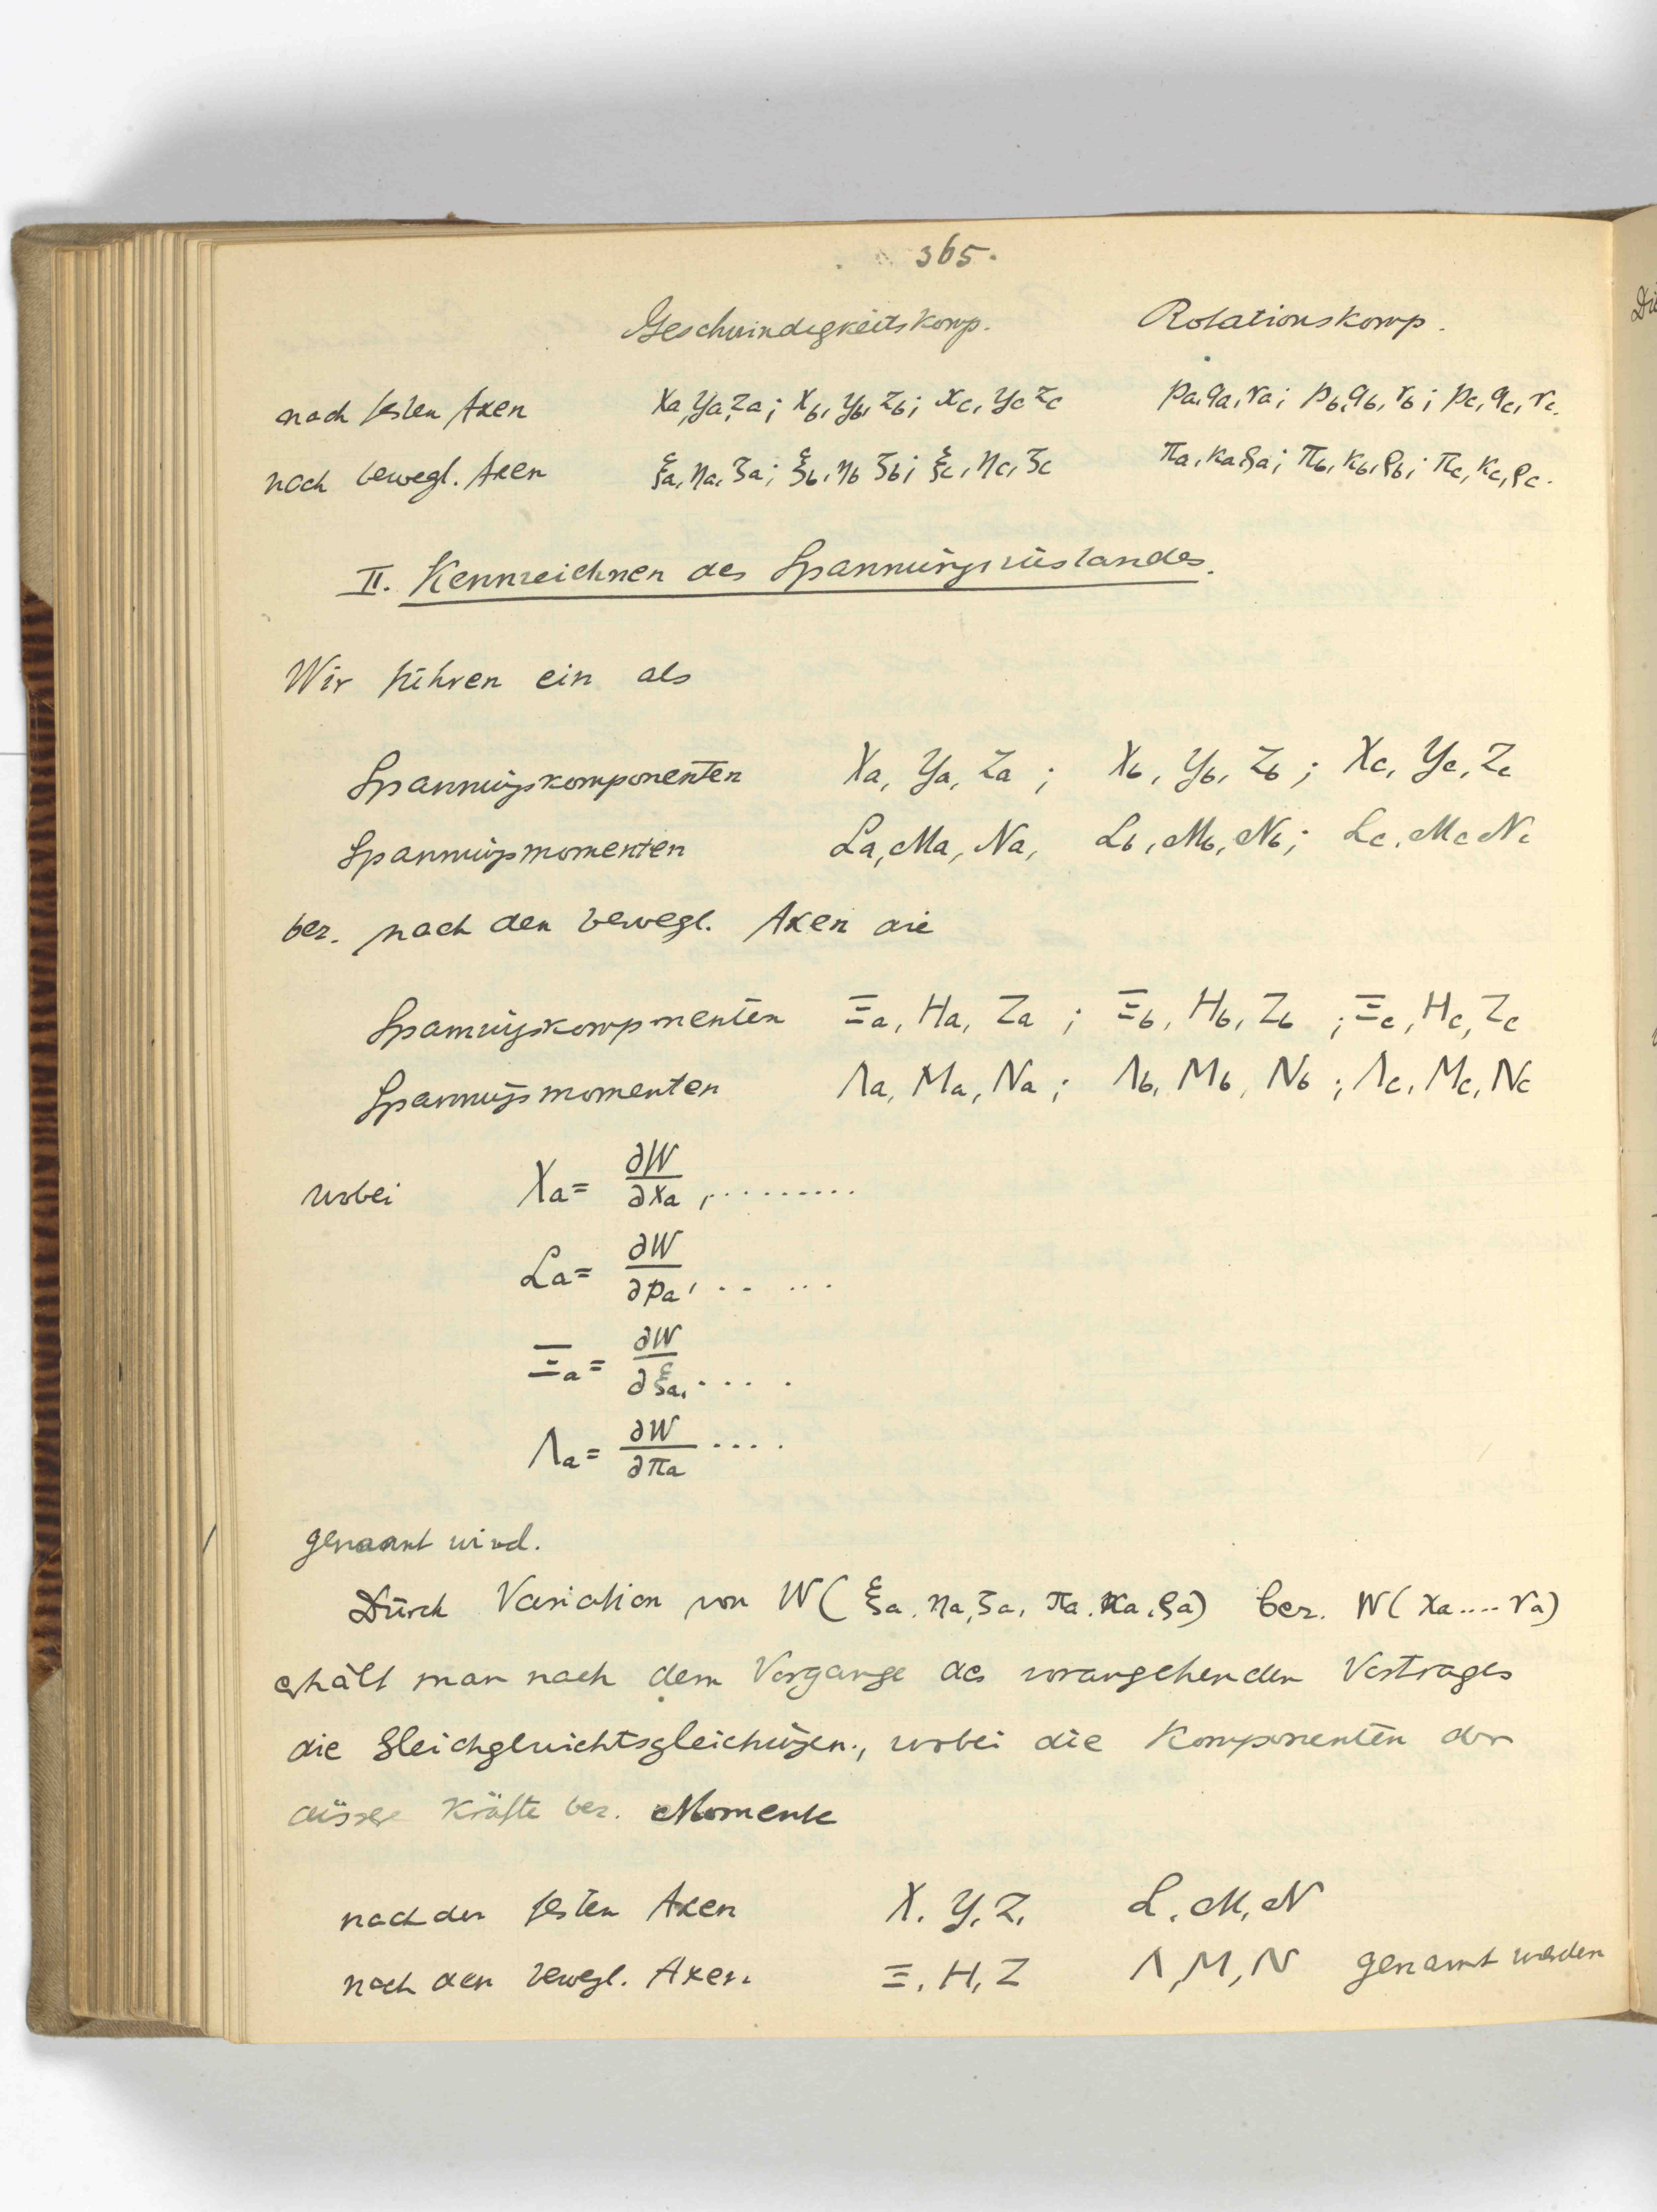 365.
Geschwindigkeitskomp. Rotationskomp.
nach festen Axen xa, ya, za; xb, yb, zb; xc, yc zc pa, qa, ra; pb, qb, rb; pc, qc, rc.
nach bewegl. Axen ξa, ηa, ζa; ξb, ηb ζb; ξc, ηc, ζc πa, κa, ρa; πb, κb, ρb; πc, κc, ρc.
II. Kennzeichnen des Spannungszustandes.
Wir führen ein als
Spannungskomponenten Xa, Ya, Za; Xb, Yb, Zb; Xc, Yc, Zc
Spannungsmomenten La, Ma, Na, Lb, Mb, Nb; Lc, Mc Nc
bez. nach den bewegl. Axen die
Spannungskomponenten Ξa, Ha, Za; Ξb, Hb, Zb; Ξc, Hc, Zc
Spannungsmomenten Λa, Ma, Na; Λb, Mb, Nb; Λc, Mc, Nc
wobei Xa = ∂W/∂xa, .........
La = ∂W/∂pa, .. ...
Ξa = ∂W/∂ξa, .... .
Λa = ∂W/∂πa ....
genannt wird.
Durch Variation von W(ξa, ηa, ζa, πa, κa, ρa) bez. W(xa .... ra)
erhält man nach dem Vorgange des vorangehenden Vortrages
die Gleichgewichtsgleichungen, wobei die Komponenten der
äussere Kräfte bez. Momente
nach den festen Axen X, Y, Z, L, M, N
nach den bewegl. Axen Ξ, H, Z Λ, M, N genannt werden
Die